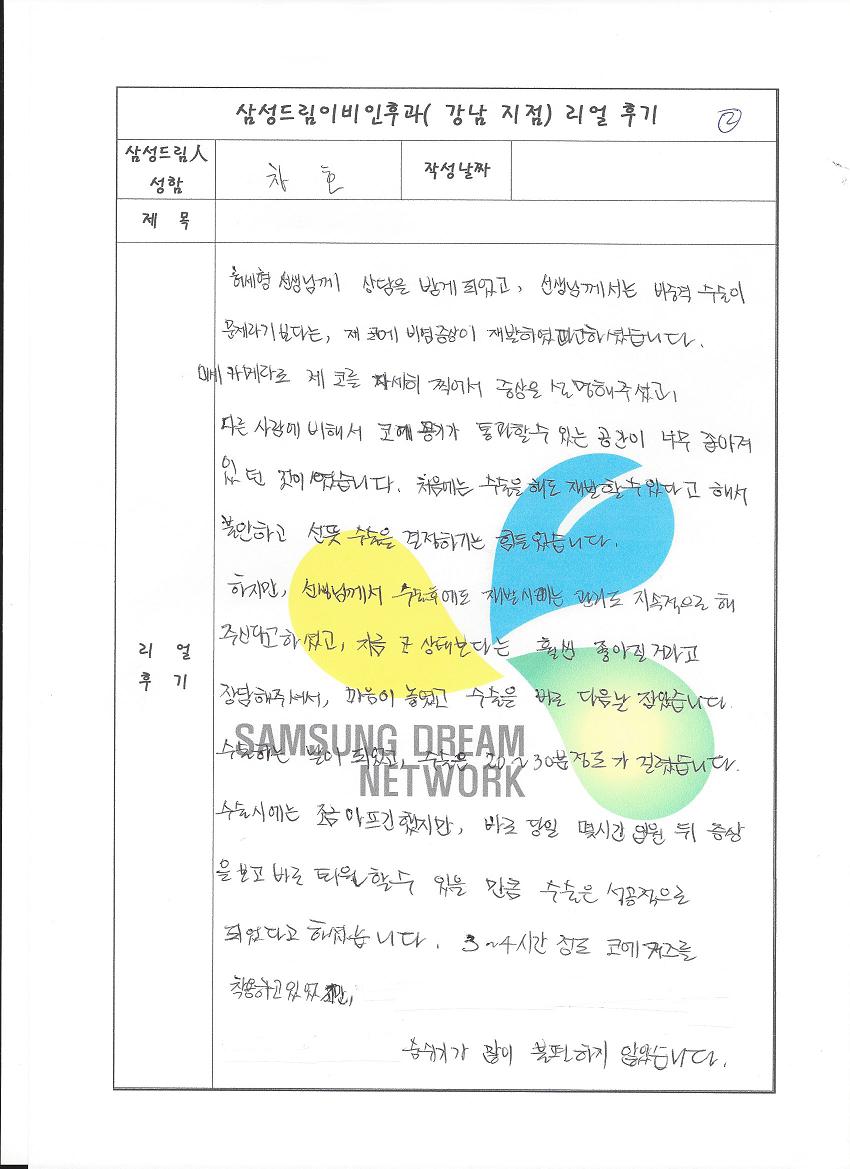 삼성드림이비인후과( 강남 지점) 리얼 후기 ②
삼성드림人 성함
차 호
작성날짜
제 목
리 얼 후 기
허세형 선생님께 상담을 받게 되었고, 선생님께서는 비중격 수술이
문제라기보다는, 제 코에 비염증상이 재발하였다고하셨습니다.
미세 카메라로 제 코를 자세히 찍어서 증상을 설명해주셨고,
다른 사람에 비해서 코에 공기가 통과할수 있는 공간이 너무 좁아져
있던 것이였습니다. 처음에는 수술을 해도 재발할수있다고 해서
불안하고 선뜻 수술을 결정하기는 힘들었습니다.
하지만, 선생님께서 수술후에도 관리도 지속적으로 해
주신다고하셨고, 지금 코 상태보다는 훨씬 좋아질거라고
장담해주셔서, 마음이 놓였고 수술을 바로 다음날 잡았습니다.
수술하는 날이 되었고, 수술은 20~30분정도가 걸렸습니다.
수술시에는 조금아프긴했지만, 바로 당일 몇시간 입원 뒤 증상
을보고 바로 퇴원할수 있을 만큼 수술은 성공적으로
되었다고 하셨습니다. 3~4시간 정도 코에 거즈를
착용하고있었지만,
숨쉬기가 많이 불편하지 않았습니다.
SAMSUNG DREAM
NETWORK